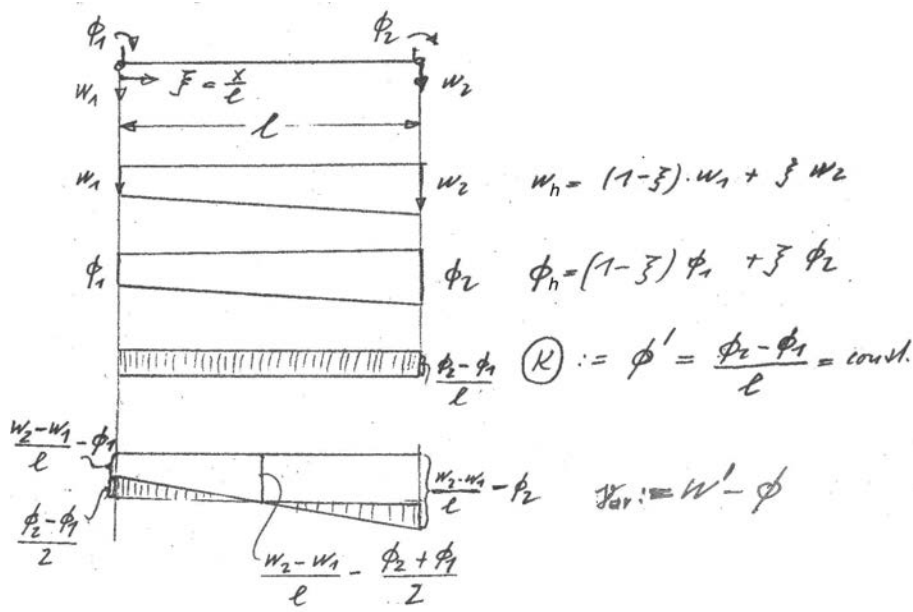 ϕ₁ ϕ₂
w₁ ξ = x/l w₂
l
w₁ w₂ w_h = (1-ξ)·w₁ + ξ w₂
ϕ₁ ϕ₂ ϕ_h = (1-ξ) ϕ₁ + ξ ϕ₂
(ϕ₂-ϕ₁)/l Ⓚ := ϕ' = (ϕ₂-ϕ₁)/l = const.
(w₂-w₁)/l - ϕ₁ (w₂-w₁)/l - ϕ₂ := w' - ϕ
(ϕ₂-ϕ₁)/2
(w₂-w₁)/l - (ϕ₂+ϕ₁)/2